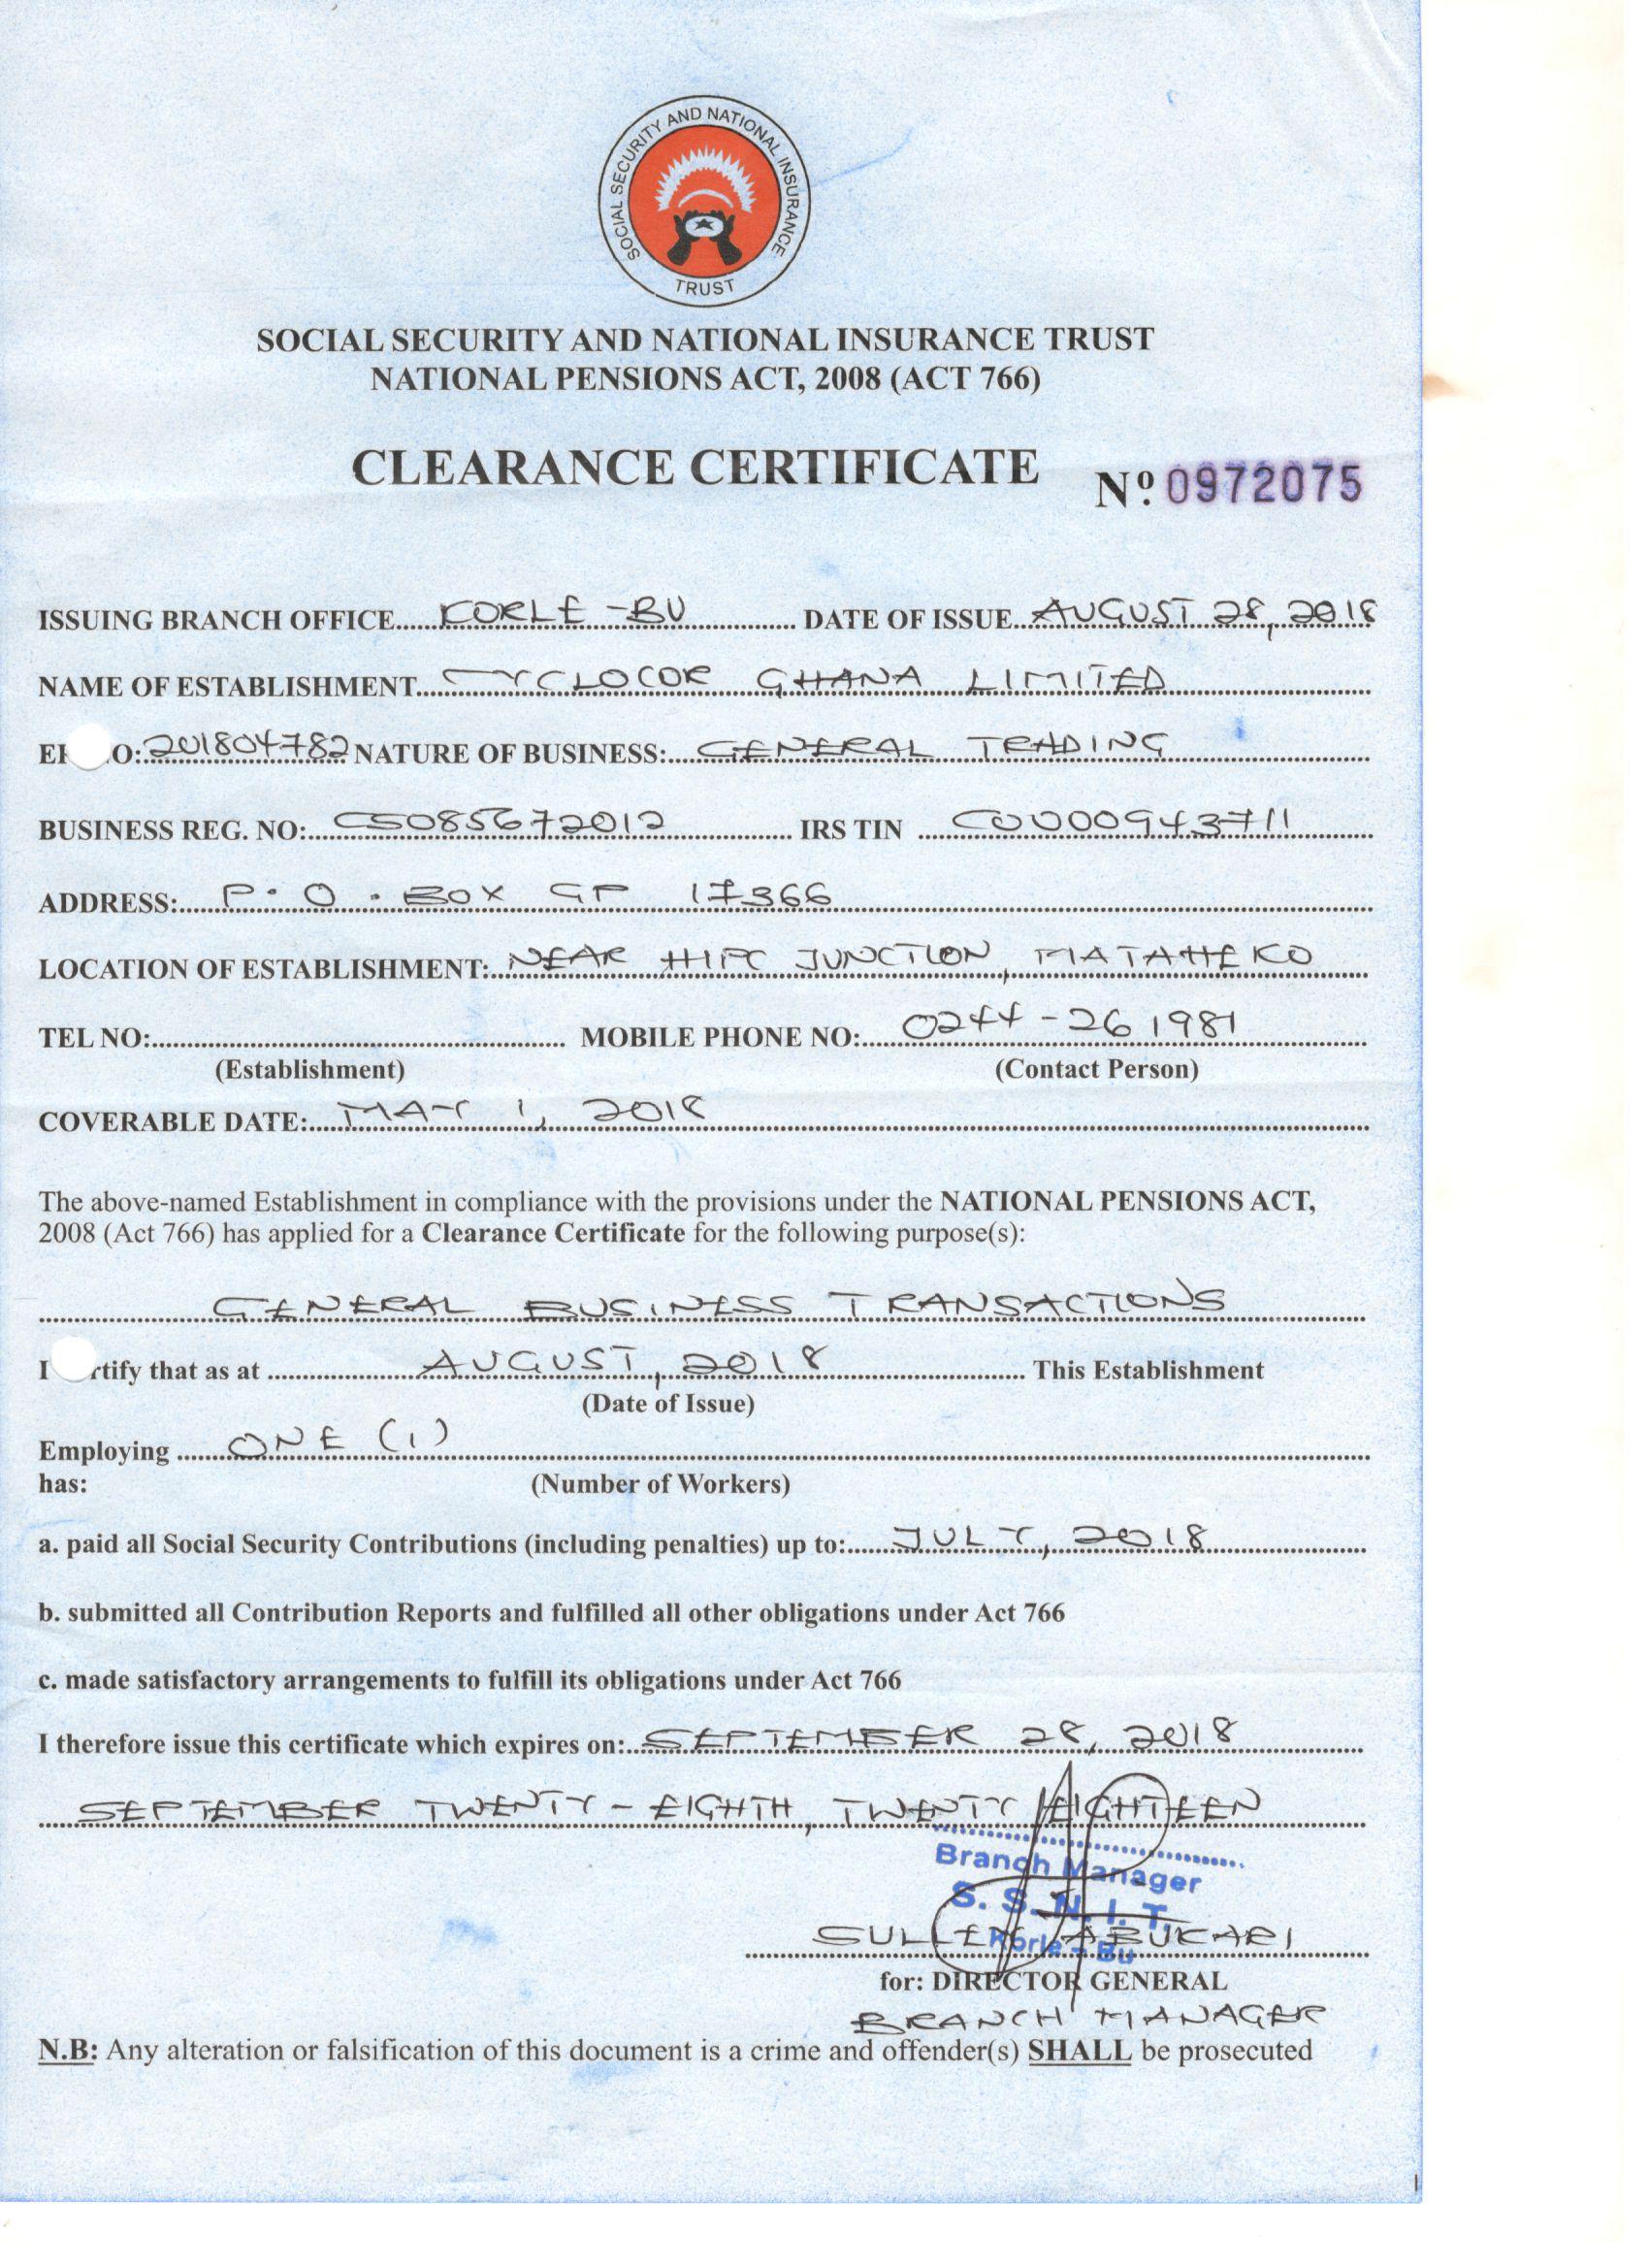 SOCIAL SECURITY AND NATIONAL INSURANCE TRUST
SOCIAL SECURITY AND NATIONAL INSURANCE TRUST
NATIONAL PENSIONS ACT, 2008 (ACT 766)
CLEARANCE CERTIFICATE Nº 0972075
ISSUING BRANCH OFFICE KORLE-BU DATE OF ISSUE AUGUST 28, 2018
NAME OF ESTABLISHMENT CYCLOCOR GHANA LIMITED
O: 201804782 NATURE OF BUSINESS: GENERAL TRADING
BUSINESS REG. NO: CS085672012 IRS TIN C0000943711
ADDRESS: P.O. BOX GP 17366
LOCATION OF ESTABLISHMENT: NEAR HIPC JUNCTION, MATAHEKO
TEL NO: MOBILE PHONE NO: 0244-261981
(Establishment) (Contact Person)
COVERABLE DATE: MAY 1, 2018
The above-named Establishment in compliance with the provisions under the NATIONAL PENSIONS ACT,
2008 (Act 766) has applied for a Clearance Certificate for the following purpose(s):
GENERAL BUSINESS TRANSACTIONS
I rtify that as at AUGUST, 2018 This Establishment
(Date of Issue)
Employing ONE (1)
has: (Number of Workers)
a. paid all Social Security Contributions (including penalties) up to: JULY, 2018
b. submitted all Contribution Reports and fulfilled all other obligations under Act 766
c. made satisfactory arrangements to fulfill its obligations under Act 766
I therefore issue this certificate which expires on: SEPTEMBER 28, 2018
SEPTEMBER TWENTY-EIGHTH, TWENTY EIGHTEEN
Branch Manager
S. S. N. I. T.
Korle - Bu
ABUKARI
for: DIRECTOR GENERAL
BRANCH MANAGER
N.B: Any alteration or falsification of this document is a crime and offender(s) SHALL be prosecuted